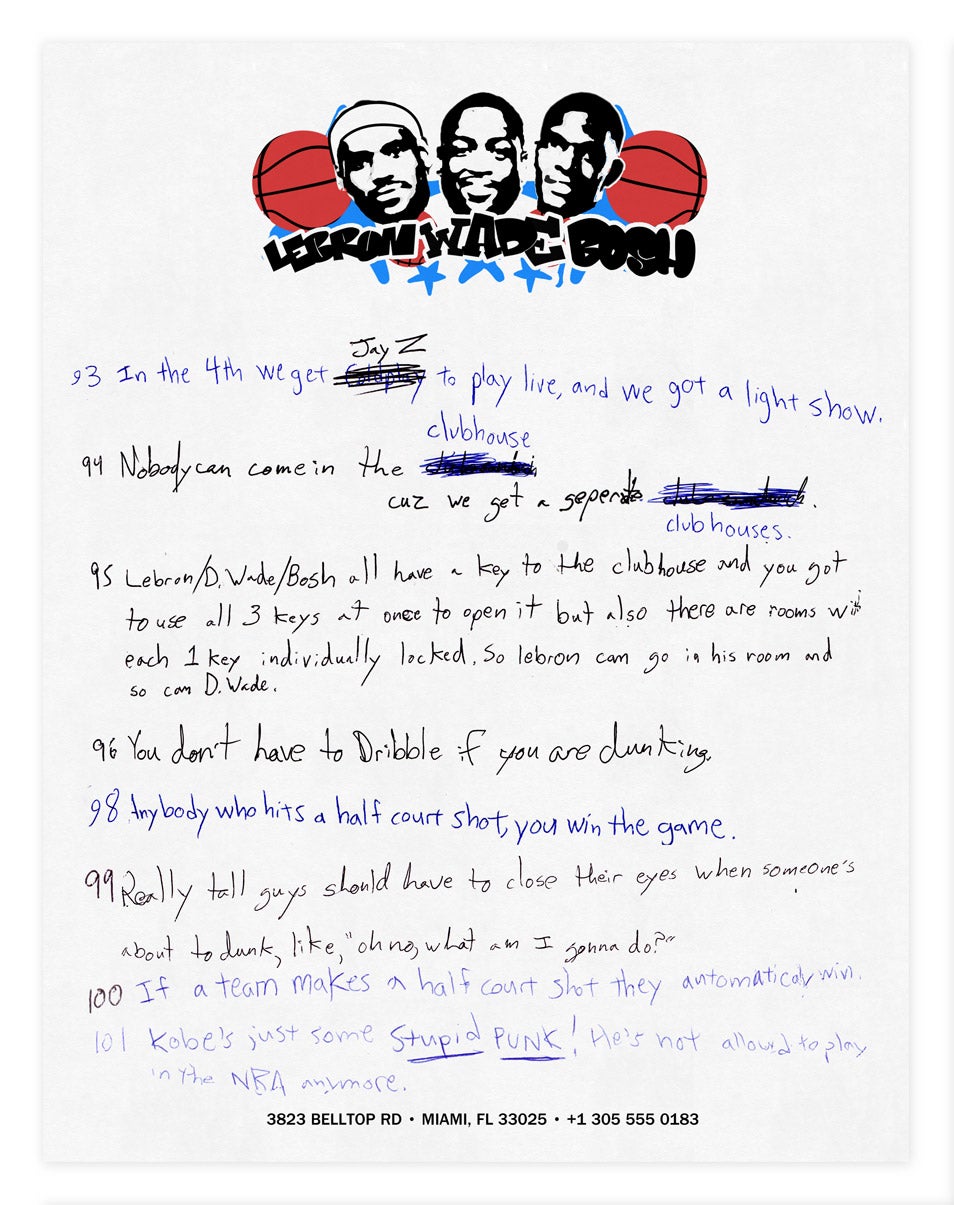 LEBRON WADE BOSH
Jay Z
93 In the 4th we get Coldplay to play live, and we got a light show.
clubhouse
94 Nobody can come in the
cuz we get a seperate .
clubhouses.
95 Lebron/D. Wade/Bosh all have a key to the clubhouse and you got
to use all 3 keys at once to open it but also there are rooms with
each 1 key individually locked. So lebron can go in his room and
so can D. Wade.
96 You don't have to Dribble if you are dunking.
98 Anybody who hits a half court shot, you win the game.
99 Really tall guys should have to close their eyes when someone's
about to dunk, like, "oh no, what am I gonna do?"
100 If a team makes a half court shot they automatically win.
101 Kobe's just some Stupid PUNK! He's not allowed to play
in the NBA anymore.
3823 BELLTOP RD • MIAMI, FL 33025 • +1 305 555 0183